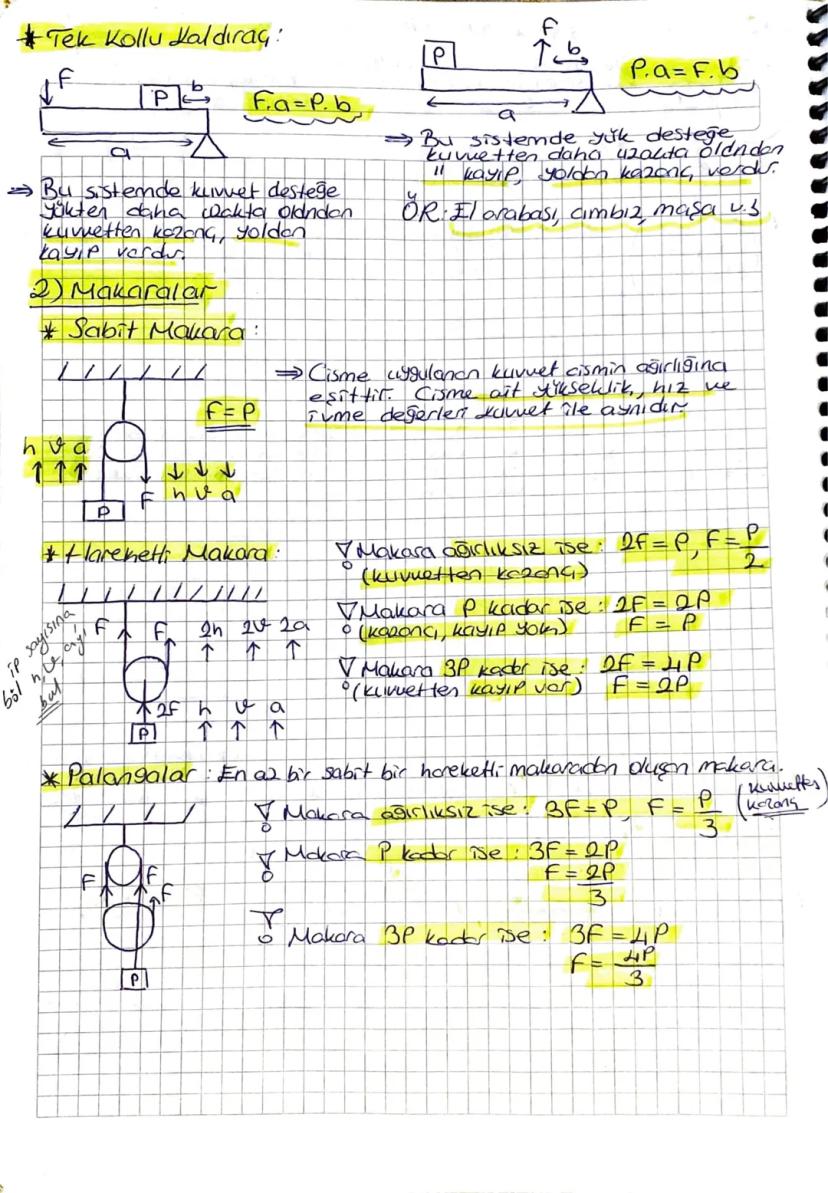 * Tek Kollu Kaldıraç:
F
P
b
a
F.a=P.b
P
F
b
a
P.a=F.b
⇒ Bu sistemde kuvvet desteğe
yükten daha uzakta olduğundan
kuvvetten kazanç, yoldan
kayıp vardır.
⇒ Bu sistemde yük desteğe
kuvvetten daha uzakta olduğundan
" kayıp, yoldan kazanç vardır.
ÖR: El arabası, cımbız, maşa v.s
2) Makaralar
* Sabit Makara:
F=P
h v a
P
F
h v a
⇒ Cisme uygulanan kuvvet cismin ağırlığına
eşittir. Cisme ait yükseklik, hız ve
ivme değerleri kuvvet ile aynıdır.
* Hareketli Makara:
ip sayısına
böl h, v, a yı
bul
F
F
2h 2v 2a
2F
h v a
P
Makara ağırlıksız ise: 2F=P, F=P/2
(kuvvetten kazanç)
Makara P kadar ise: 2F=2P
(kazanç, kayıp yok) F=P
Makara 3P kadar ise: 2F=4P
(kuvvetten kayıp var) F=2P
* Palangalar: En az bir sabit bir hareketli makaradan oluşan makara.
F
F
F
P
Makara ağırlıksız ise: 3F=P, F=P/3 (kuvvetten
kazanç)
Makara P kadar ise: 3F=2P
F=2P/3
Makara 3P kadar ise: 3F=4P
F=4P/3